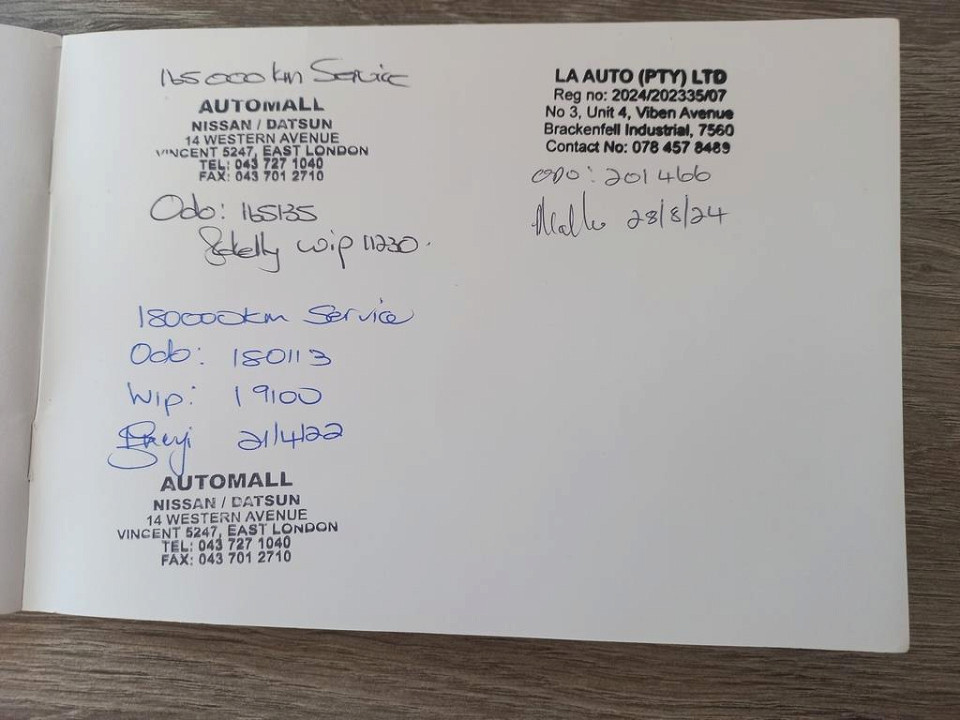 165000km Service
AUTOMALL
NISSAN / DATSUN
14 WESTERN AVENUE
VINCENT 5247, EAST LONDON
TEL: 043 727 1040
FAX: 043 701 2710
Odo: 165135
wip 11230.
180000km Service
Odo: 180113
Wip: 19100
21/4/22
AUTOMALL
NISSAN / DATSUN
14 WESTERN AVENUE
VINCENT 5247, EAST LONDON
TEL: 043 727 1040
FAX: 043 701 2710
LA AUTO (PTY) LTD
Reg no: 2024/202335/07
No 3, Unit 4, Viben Avenue
Brackenfell Industrial, 7560
Contact No: 078 457 8489
ODO: 201466
28/8/24